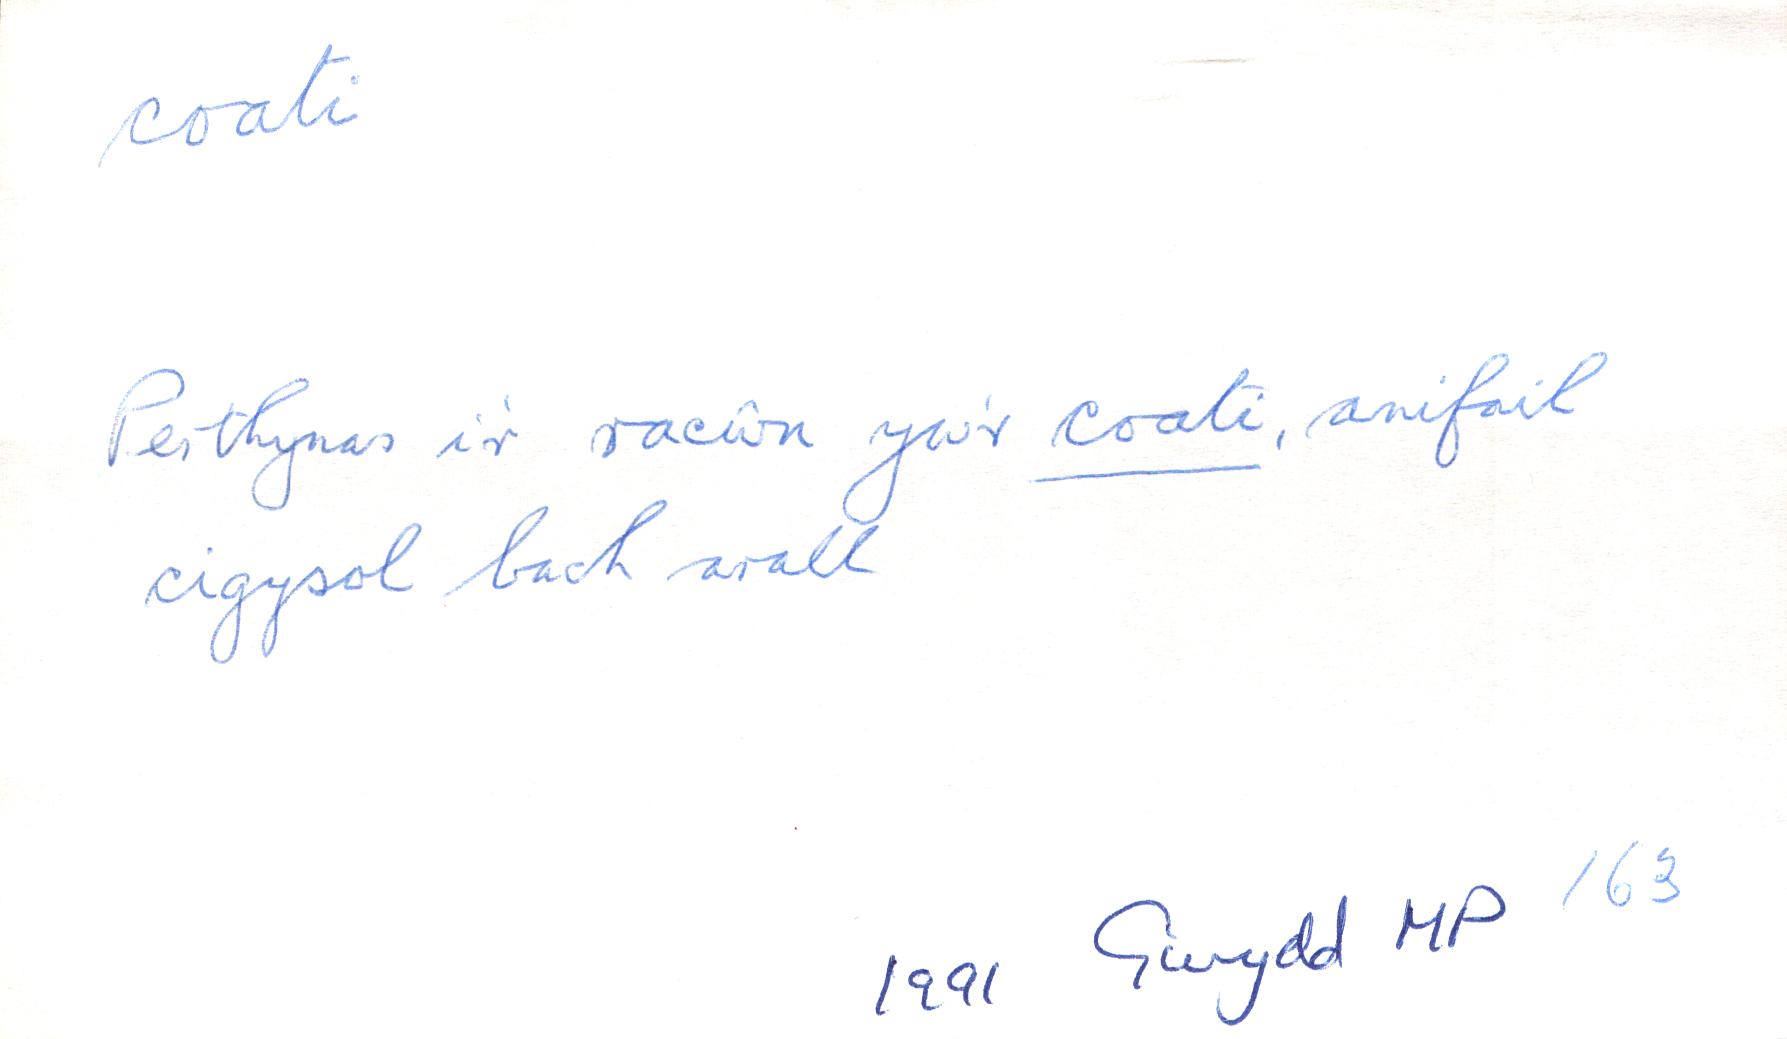 coati
Perthynas i'r racŵn yw'r coati, anifail
cigysol bach arall
163
1991 Gwydd MP